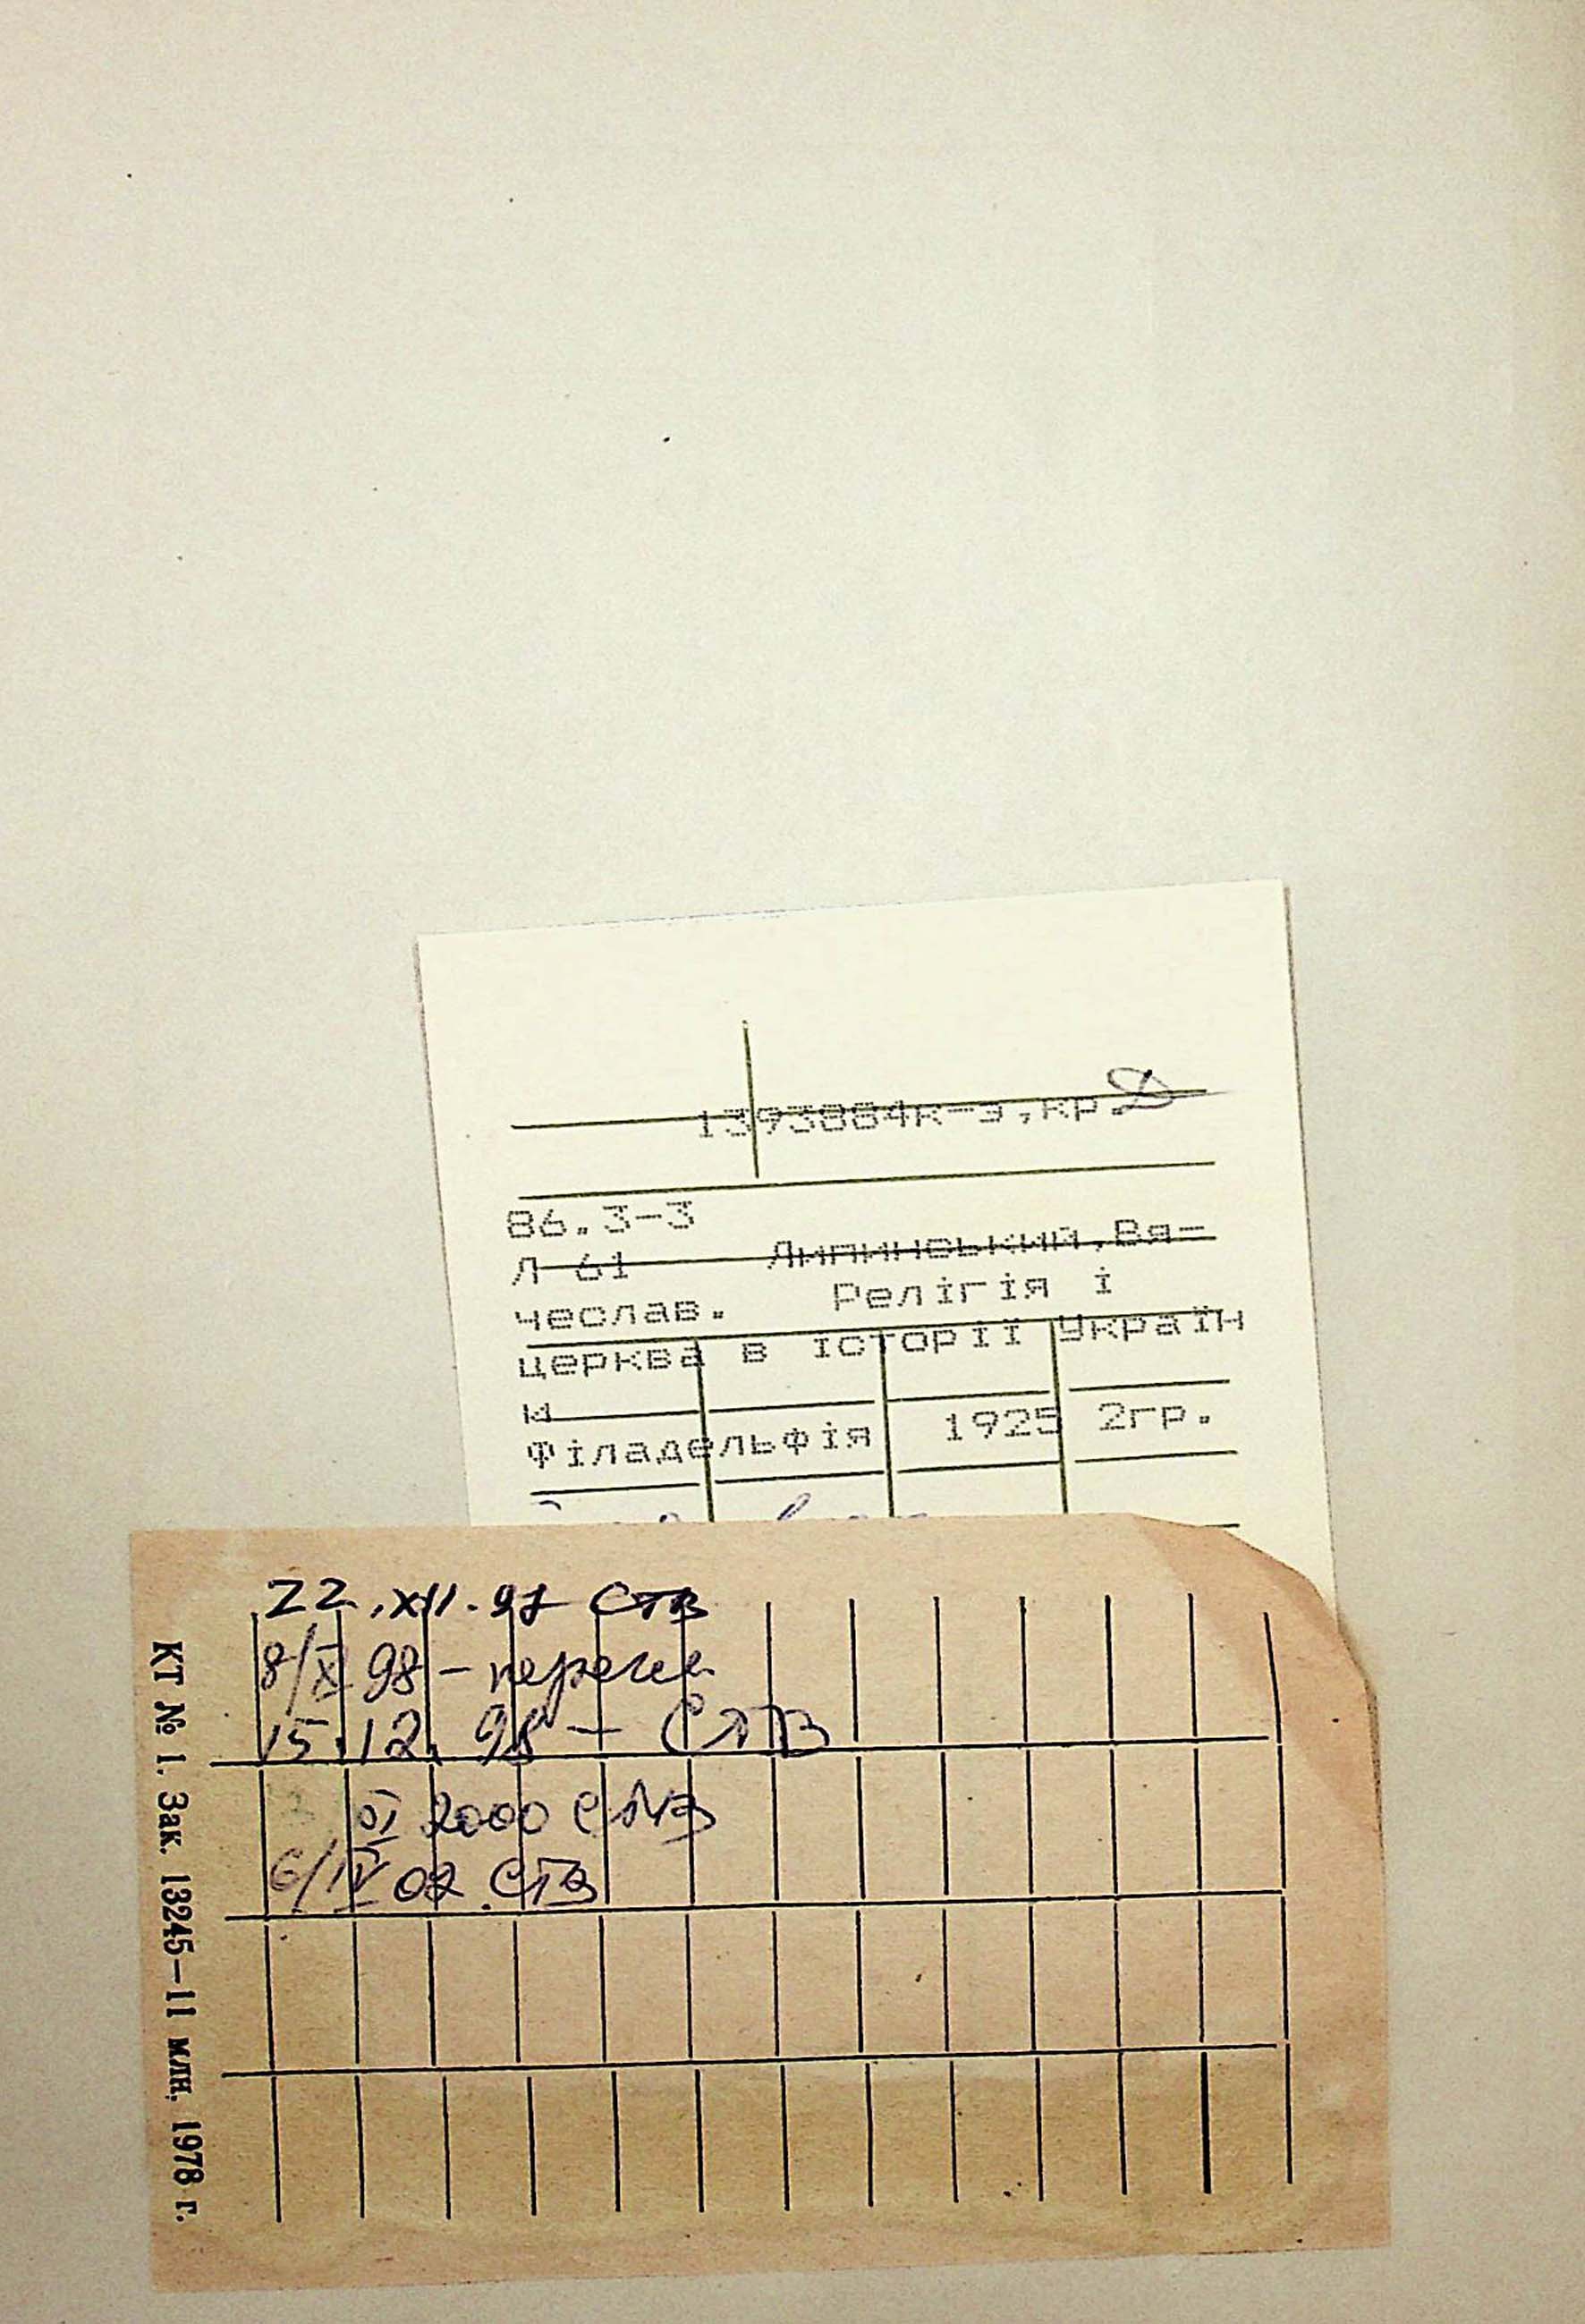 1393864к-э,кр.
86.3-3
Л 61 Липинський,Вя-
чеслав. Релігія і
церква в історії Україн
и
Філадельфія 1925 2гр.
22.XII.97 СТВ
8/X 98 -
15.12.98 - СТВ
VI 2000 СТВ
6/IV 02. СТВ
КТ № 1. Зак. 13245—11 млн, 1978 г.